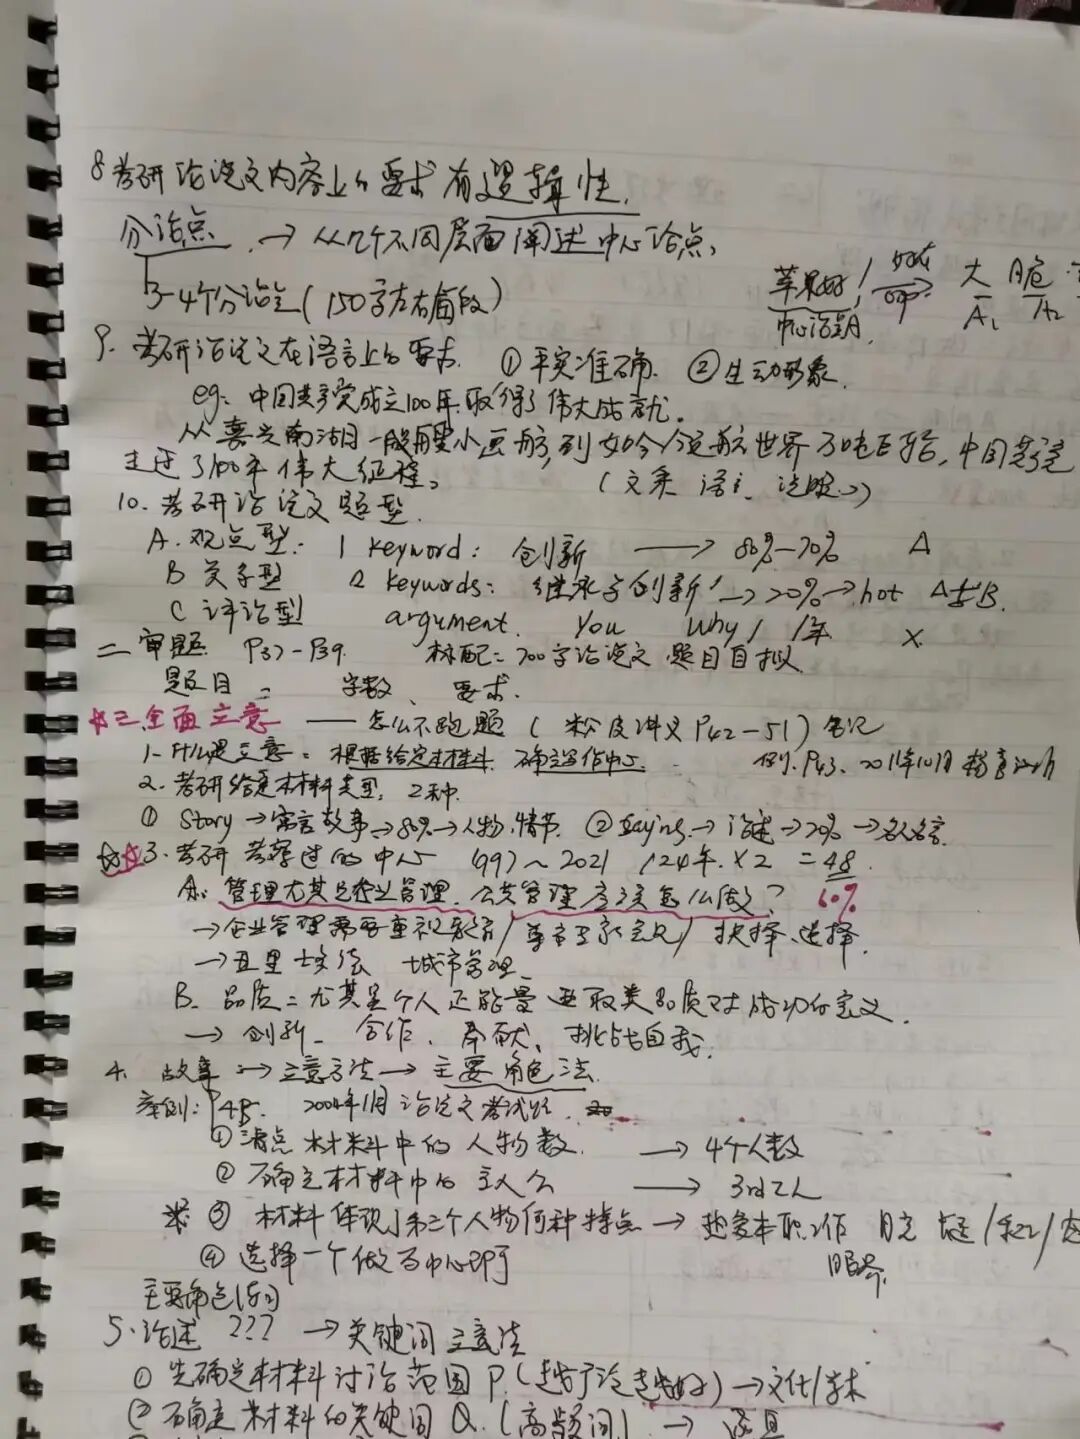 8 考研论说文内容上的要求 有逻辑性.
分论点 → 从几个不同层面阐述中心论点.
3-4个分论点 (150字左右每段)
苹果好! → 大 脆
中心论点 A1 A2
9. 考研论说文在语言上的要求. ①平实准确. ②生动形象.
eg: 中国共产党成立100年.取得了伟大成就.
从嘉兴南湖一艘小画舫,到如今领航世界 巨轮,中国共产党
走过了100年伟大征程. (文采 语言
10. 考研论说文题型.
A. 观点型: 1 keyword: 创新 → 80%-70% A
B 关系型 2 keywords: 继承与创新 → 20% → hot A与B.
C 评论型 argument. You Why / 1年 X
二 审题. P37-P39. 标配: 700字论说文 题目自拟
题目 字数、要求.
☆三.全面立意 —— 怎么不跑题 ( 讲义 P42-51) 笔记
1. 什么是立意: 根据给定材料 确定写作中心. 例. P43. 2011年10月
2. 考研给定材料类型: 2种.
① Story → 寓言故事 → 80% → 人物.情节. ② Saying → 论述 → 20% → 名人名言.
☆☆3. 考研 考察过的中心 1997~2021 24年.×2 =48.
A: 管理尤其是企业管理. 公共管理应该怎么做? 60%
→ 企业管理需要重视 / / 抉择、选择.
→ 城市管理
B. 品质: 尤其是个人正能量 品质对成功的意义.
→ 创新、合作、奉献、挑战自我.
4. 故事 → 立意方法 → 主要角色法.
案例: P43. 2004年1月论说文考试题.
①清点材料中的人物数. → 4个人数
②确定材料中的主人公 → 3rd工人
※ ③材料体现了第三个人物何种特点 → 热爱本职工作 / /
④选择一个做为中心即可
主要角色
5. 论述 ??? → 关键词立意法
①先确定材料讨论范围P. ( ) → 文化/学术
②确定材料的关键词Q. (高频词) →